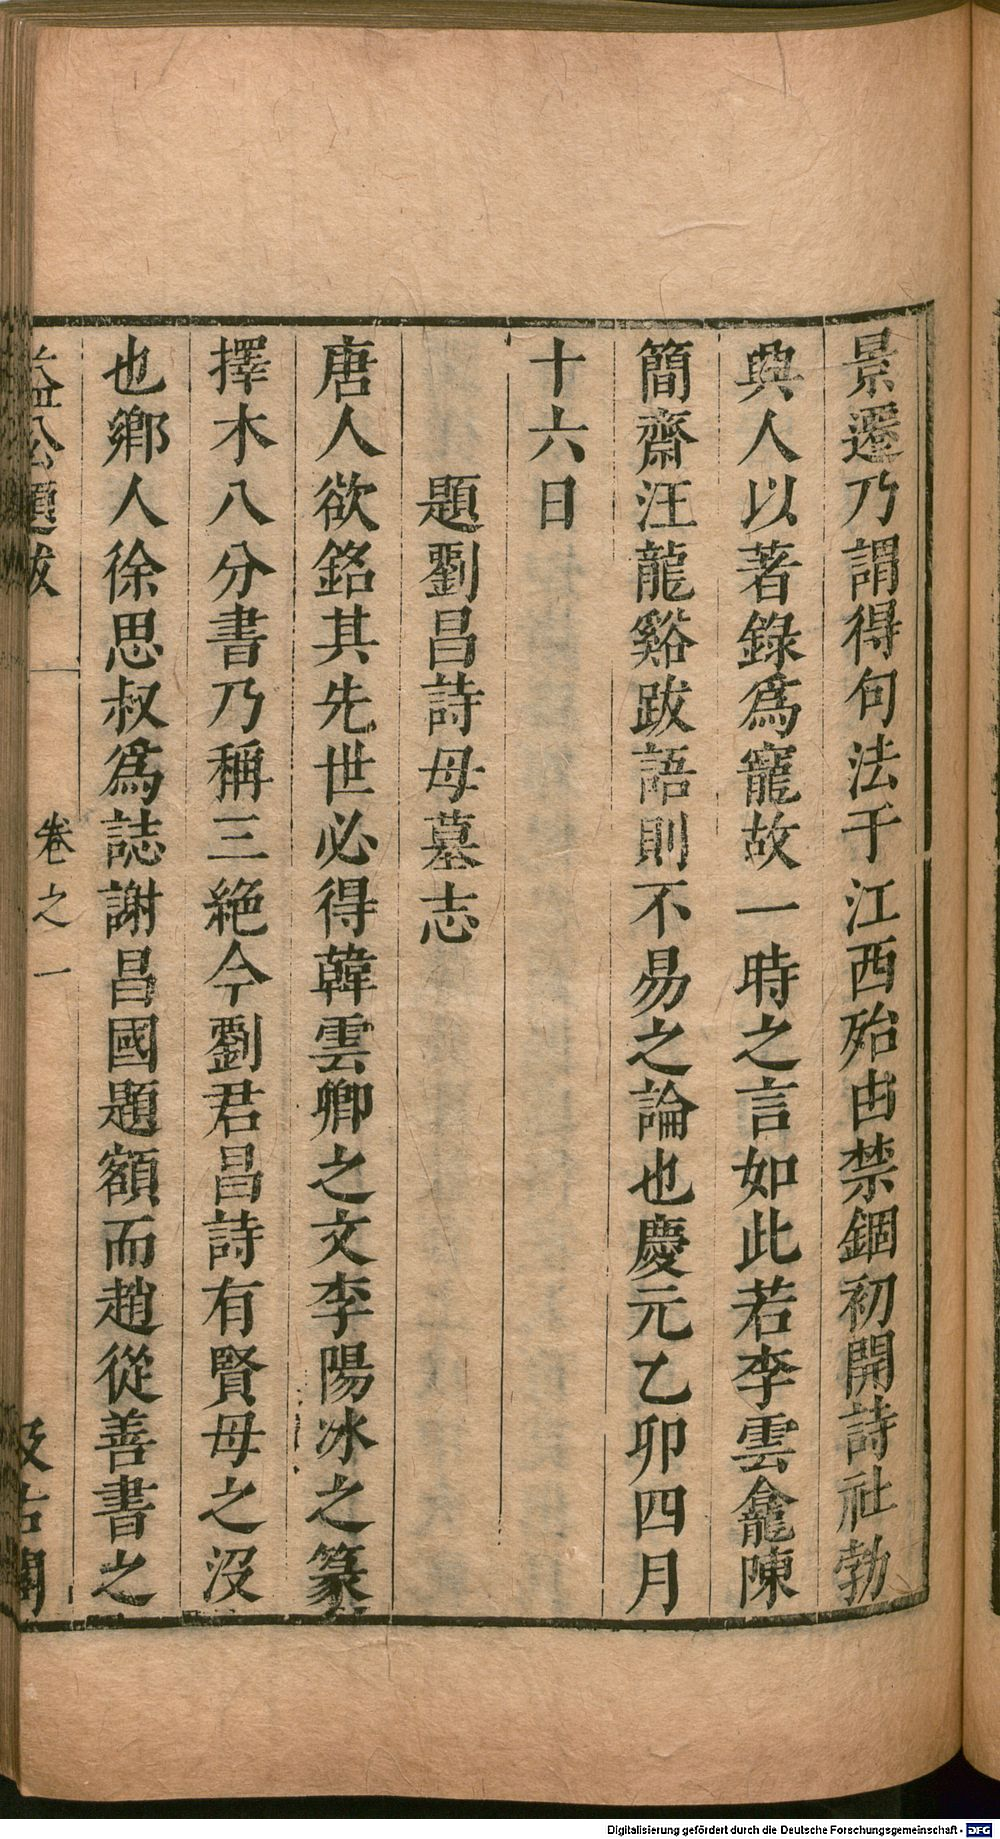 景遷乃謂得句法于江西殆由禁錮初開詩社勃
興人以著錄爲寵故一時之言如此若李雲龕陳
簡齋汪龍谿跋語則不易之論也慶元乙卯四月
十六日
題劉昌詩母墓志
唐人欲銘其先世必得韓雲卿之文李陽冰之篆
擇木八分書乃稱三絶今劉君昌詩有賢母之沒
也鄉人徐思叔爲誌謝昌國題額而趙從善書之
益公題跋 卷之一 汲古閣
Digitalisierung gefördert durch die Deutsche Forschungsgemeinschaft - DFG